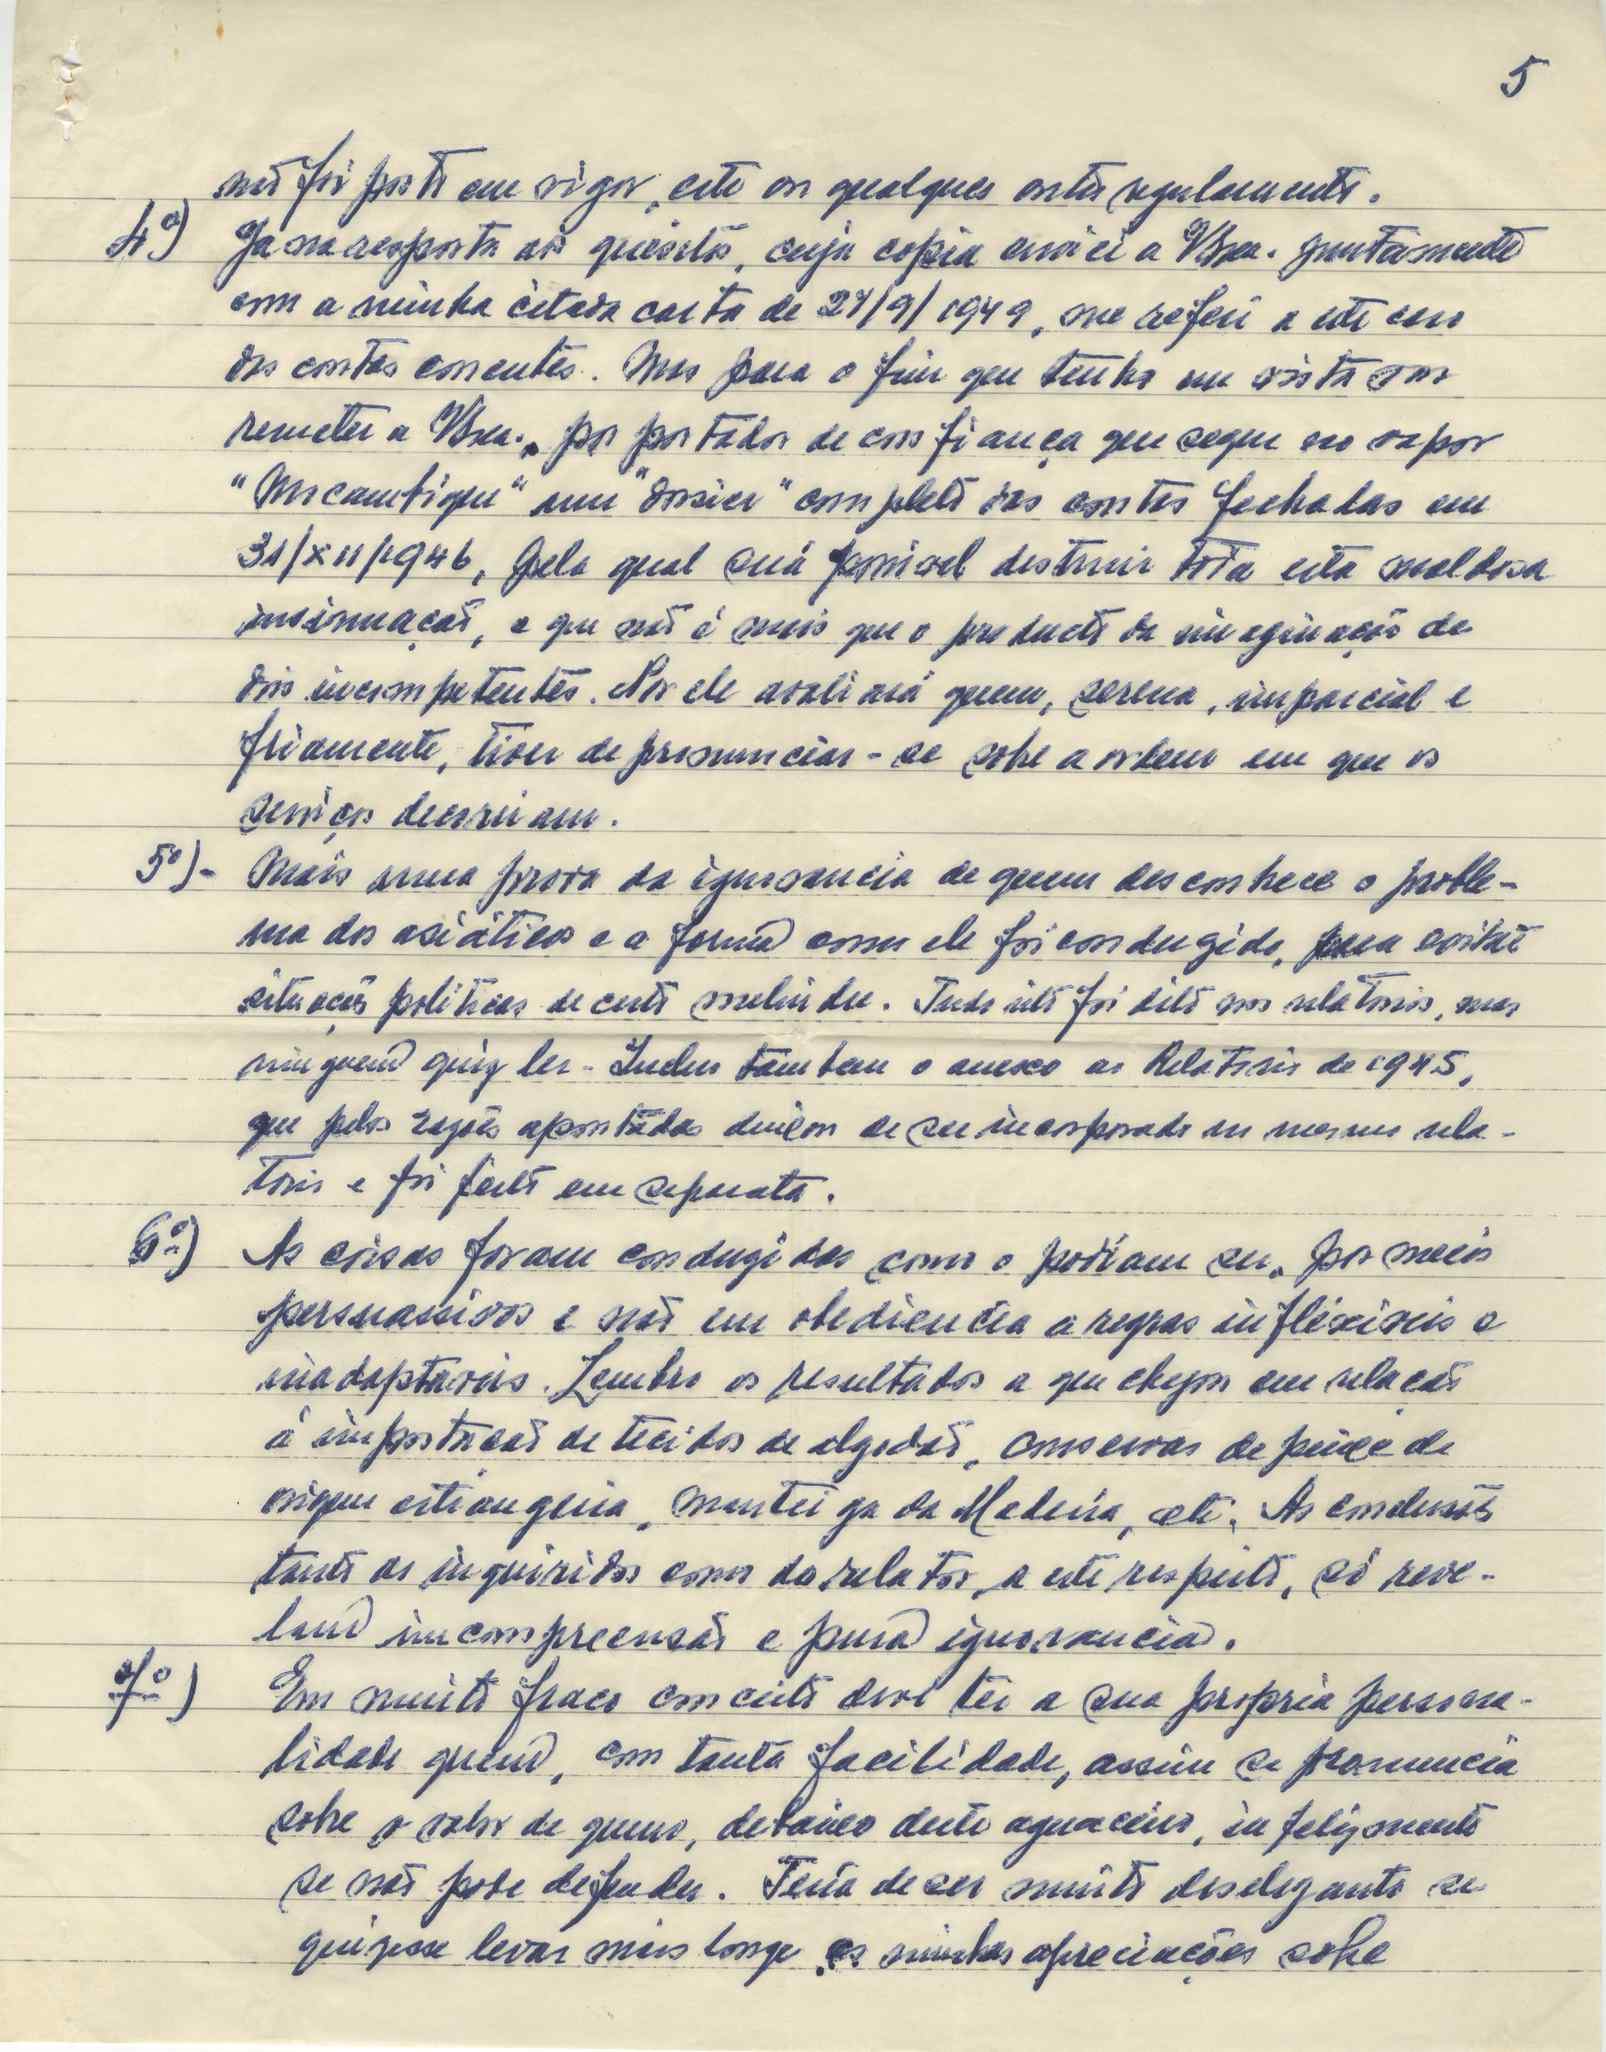 5
não foi posto em vigor, este ou qualquer outro regulamento.
4º) Já na resposta aos quesitos, cuja copia enviei a VExa. juntamente
com a minha citada carta de 27/9/1949, me referi a este caso
das contas correntes. Mas para o fim que tenho em vista vou
remeter a VExa., por portador de confiança que segue no vapor
"Moçambique" um "dossier" completo das contas fechadas em
31/XII/1946, pela qual será possivel destruir toda esta maldosa
insinuação, e que não é mais que o producto da imaginação de
dois incompetentes. Por ele avaliará quem, serena, imparcial e
friamente, tiver de pronunciar-se sobre a ordem em que os
serviços decorriam.
5º)- Mais uma prova da ignorancia de quem desconhece o proble-
ma dos asiáticos e a forma como ele foi condusido, para evitar
situações politicas de certo melindre. Tudo isto foi dito nos relatorios, mas
ninguem quiz ler - Incluo tambem o anexo ao Relatorio de 1945,
que pelas razões apontadas deixou de ser incorporado no mesmo rela-
torio e foi feito em separata.
6º) As coisas foram condusidas como o podiam ser, por meios
persuassivos e não em obediencia a regras inflexiveis e
inadaptaveis. Lembro os resultados a que chegou em relação
á importação de tecidos de algodão, conservas de peixe de
origem estrangeira, manteiga da Madeira, etc. As conclusões
tanto do inquiridor como do relator, a este respeito, só reve-
lam incompreensão e pura ignorancia.
7º) Em muito fraco conceito deve ter a sua propria persona-
lidade quem, com tanta facilidade, assim se pronuncia
sobre o valor de quem, debaixo deste aguaceiro, infelizmente
se não pode defender. Teria de ser muito deselegante se
quizesse levar mais longe as minhas apreciações sobre